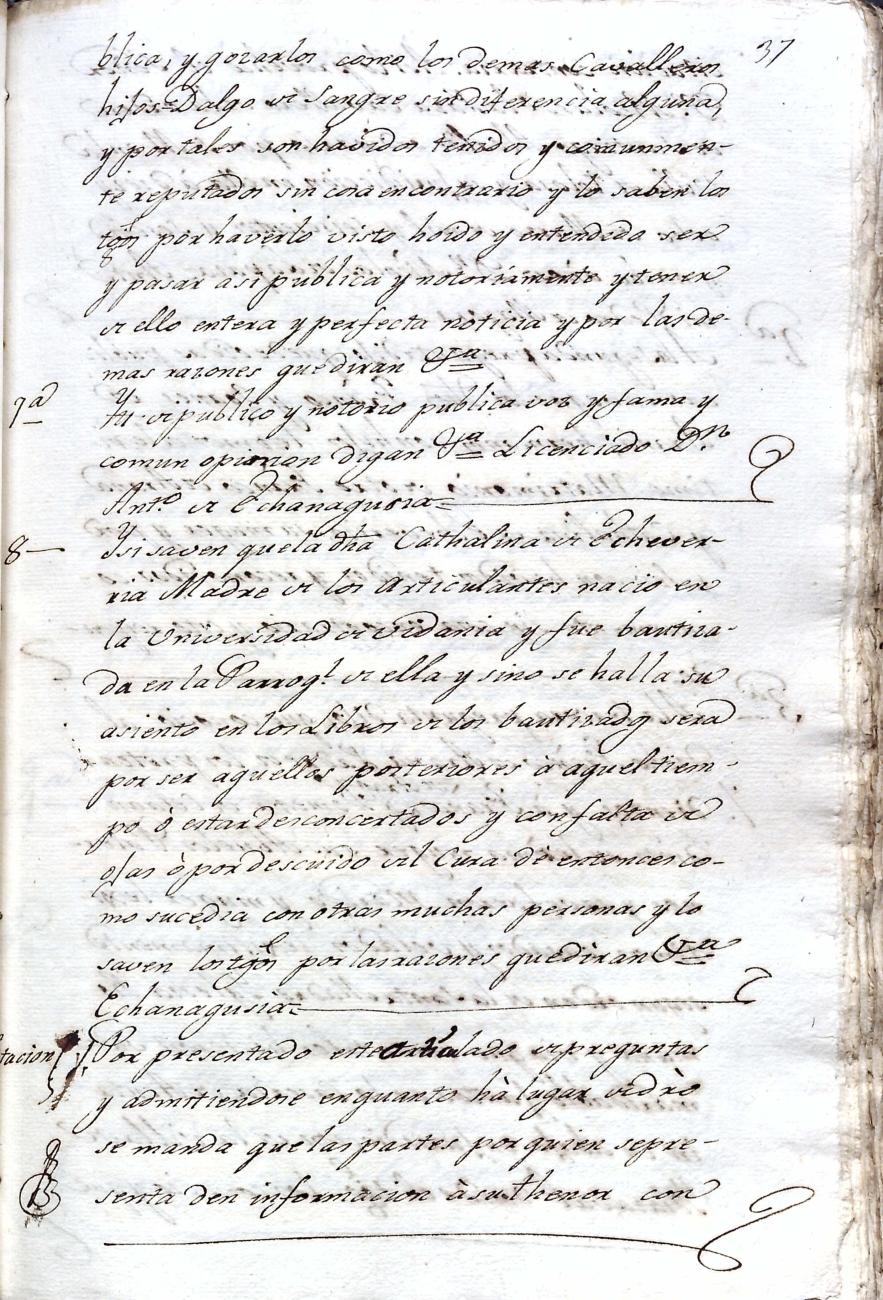 37
blica, y gozarlos como los demas Cavalleros
hijos Dalgo de Sangre sin diferencia alguna,
y por tales son havidos tenidos y comunmen-
te reputados sin cosa en contrario y lo saben los
tgos por haverlo visto hoido y entendido ser
y pasar asi publica y notoriamente y tener
de ello entera y perfecta noticia y por las de-
mas razones que diran &a
7a Yt. de publico y notorio publica voz y fama y
comun opinion digan &a Licenciado Dn.
Anto. de Echanagusia=
8 Y si saven que la dha Cathalina de Echever-
ria Madre de los Articulantes nacio en
la Universidad de Vidania y fue bautiza-
da en la Parroql. de ella y sino se halla su
asiento en los Libros de los bautizados sera
por ser aquellos posteriores à aquel tiem-
po ò estar desconcertados y con falta de
ojas ò por descuido del Cura de entonces co-
mo sucedia con otras muchas personas y lo
saven los tgos por las razones que diran &a
Echanagusia=
tacion Por presentado este articulado de preguntas
y admitiendose en quanto hà lugar de dròo
se manda que las partes por quien se pre-
senta den informacion à su thenor con